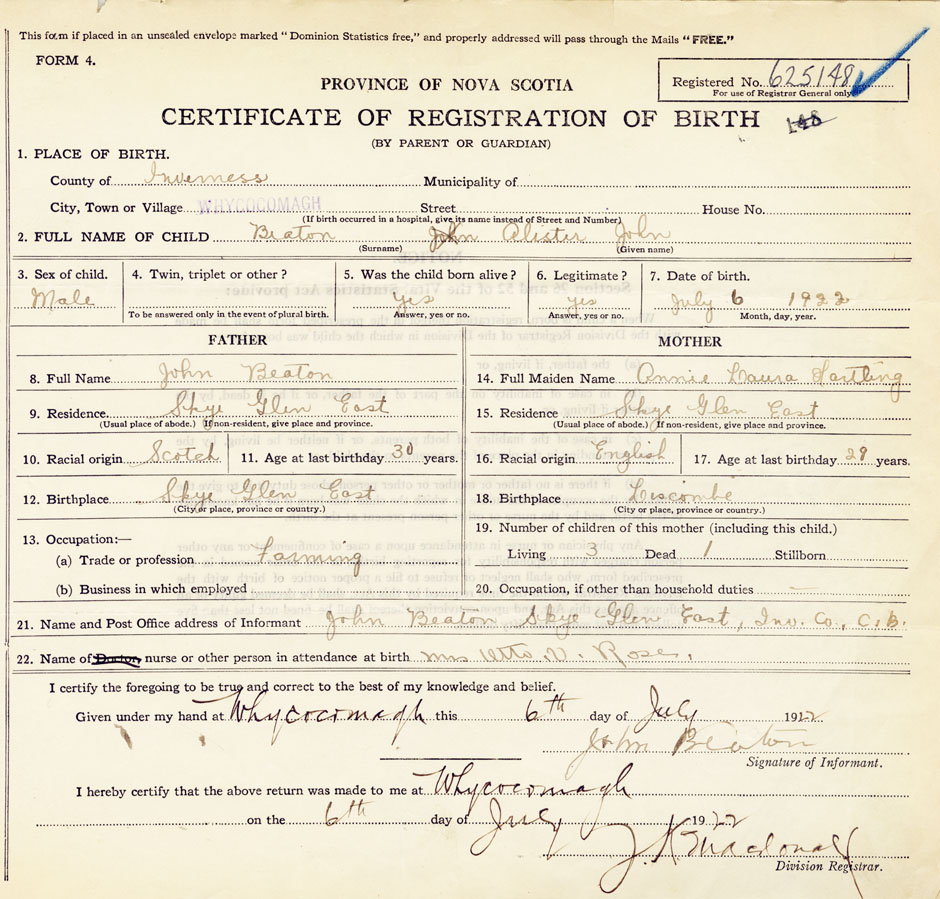 This form if placed in an unsealed envelope marked "Dominion Statistics free," and properly addressed will pass through the Mails "FREE."
FORM 4.
PROVINCE OF NOVA SCOTIA
Registered No. 625148
For use of Registrar General only
CERTIFICATE OF REGISTRATION OF BIRTH 148
(BY PARENT OR GUARDIAN)
1. PLACE OF BIRTH.
County of Inverness Municipality of
City, Town or Village WHYCOCOMAGH Street House No.
(If birth occurred in a hospital, give its name instead of Street and Number)
2. FULL NAME OF CHILD Beaton John Alister John
(Surname) (Given name)
3. Sex of child. 4. Twin, triplet or other? 5. Was the child born alive? 6. Legitimate? 7. Date of birth.
Male Yes yes July 6 1922
To be answered only in the event of plural birth. Answer, yes or no. Answer, yes or no. Month, day, year.
FATHER MOTHER
8. Full Name John Beaton 14. Full Maiden Name Annie Laura Hartling
9. Residence Skye Glen East 15. Residence Skye Glen East
(Usual place of abode.) If non-resident, give place and province. (Usual place of abode.) If non-resident, give place and province.
10. Racial origin Scotch 11. Age at last birthday 30 years. 16. Racial origin English 17. Age at last birthday 29 years.
12. Birthplace Skye Glen East 18. Birthplace Liscombe
(City or place, province or country.) (City or place, province or country.)
13. Occupation:— 19. Number of children of this mother (including this child.)
(a) Trade or profession Farming Living 3 Dead 1 Stillborn
(b) Business in which employed 20. Occupation, if other than household duties
21. Name and Post Office address of Informant John Beaton Skye Glen East, Inv. Co., C.B.
22. Name of Doctor nurse or other person in attendance at birth Mrs Otto V. Rose.
I certify the foregoing to be true and correct to the best of my knowledge and belief.
Given under my hand at Whycocomagh this 6th day of July 1922
John Beaton
Signature of Informant.
I hereby certify that the above return was made to me at Whycocomagh
on the 6th day of July 1922
Macdonald
Division Registrar.